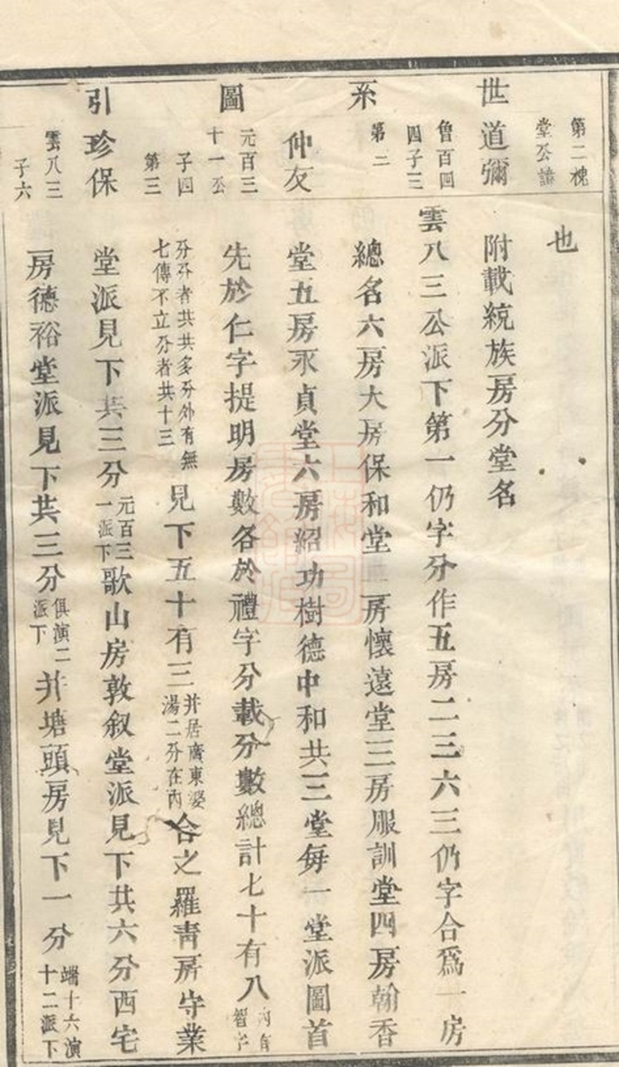 世系圖引
第二槐
堂公諱
道彌
魯百四
四子三
第二
仲友
元百三
十一公
子四
第三
珍保
雲八三
子六
也
附載統族房分堂名
雲八三公派下第一仍字分作五房二三六三仍字合爲一房
總名六房大房保和堂二房懷遠堂三房服訓堂四房翰香
堂五房永貞堂六房紹功樹德中和共三堂每一堂派圖首
先於仁字提明房數各於禮字分載分數總計七十有八內有智字
分外者共共多分外有無
七傳不立分者共十三
見下五十有三
并居廣東婆
湯二分在內
合之羅青房守業
堂派見下共三分
元百三
一派下
歌山房敦叙堂派見下共六分西宅
房德裕堂派見下共三分
俱演二
派下
并塘頭房見下一分
端十六演
十二派下